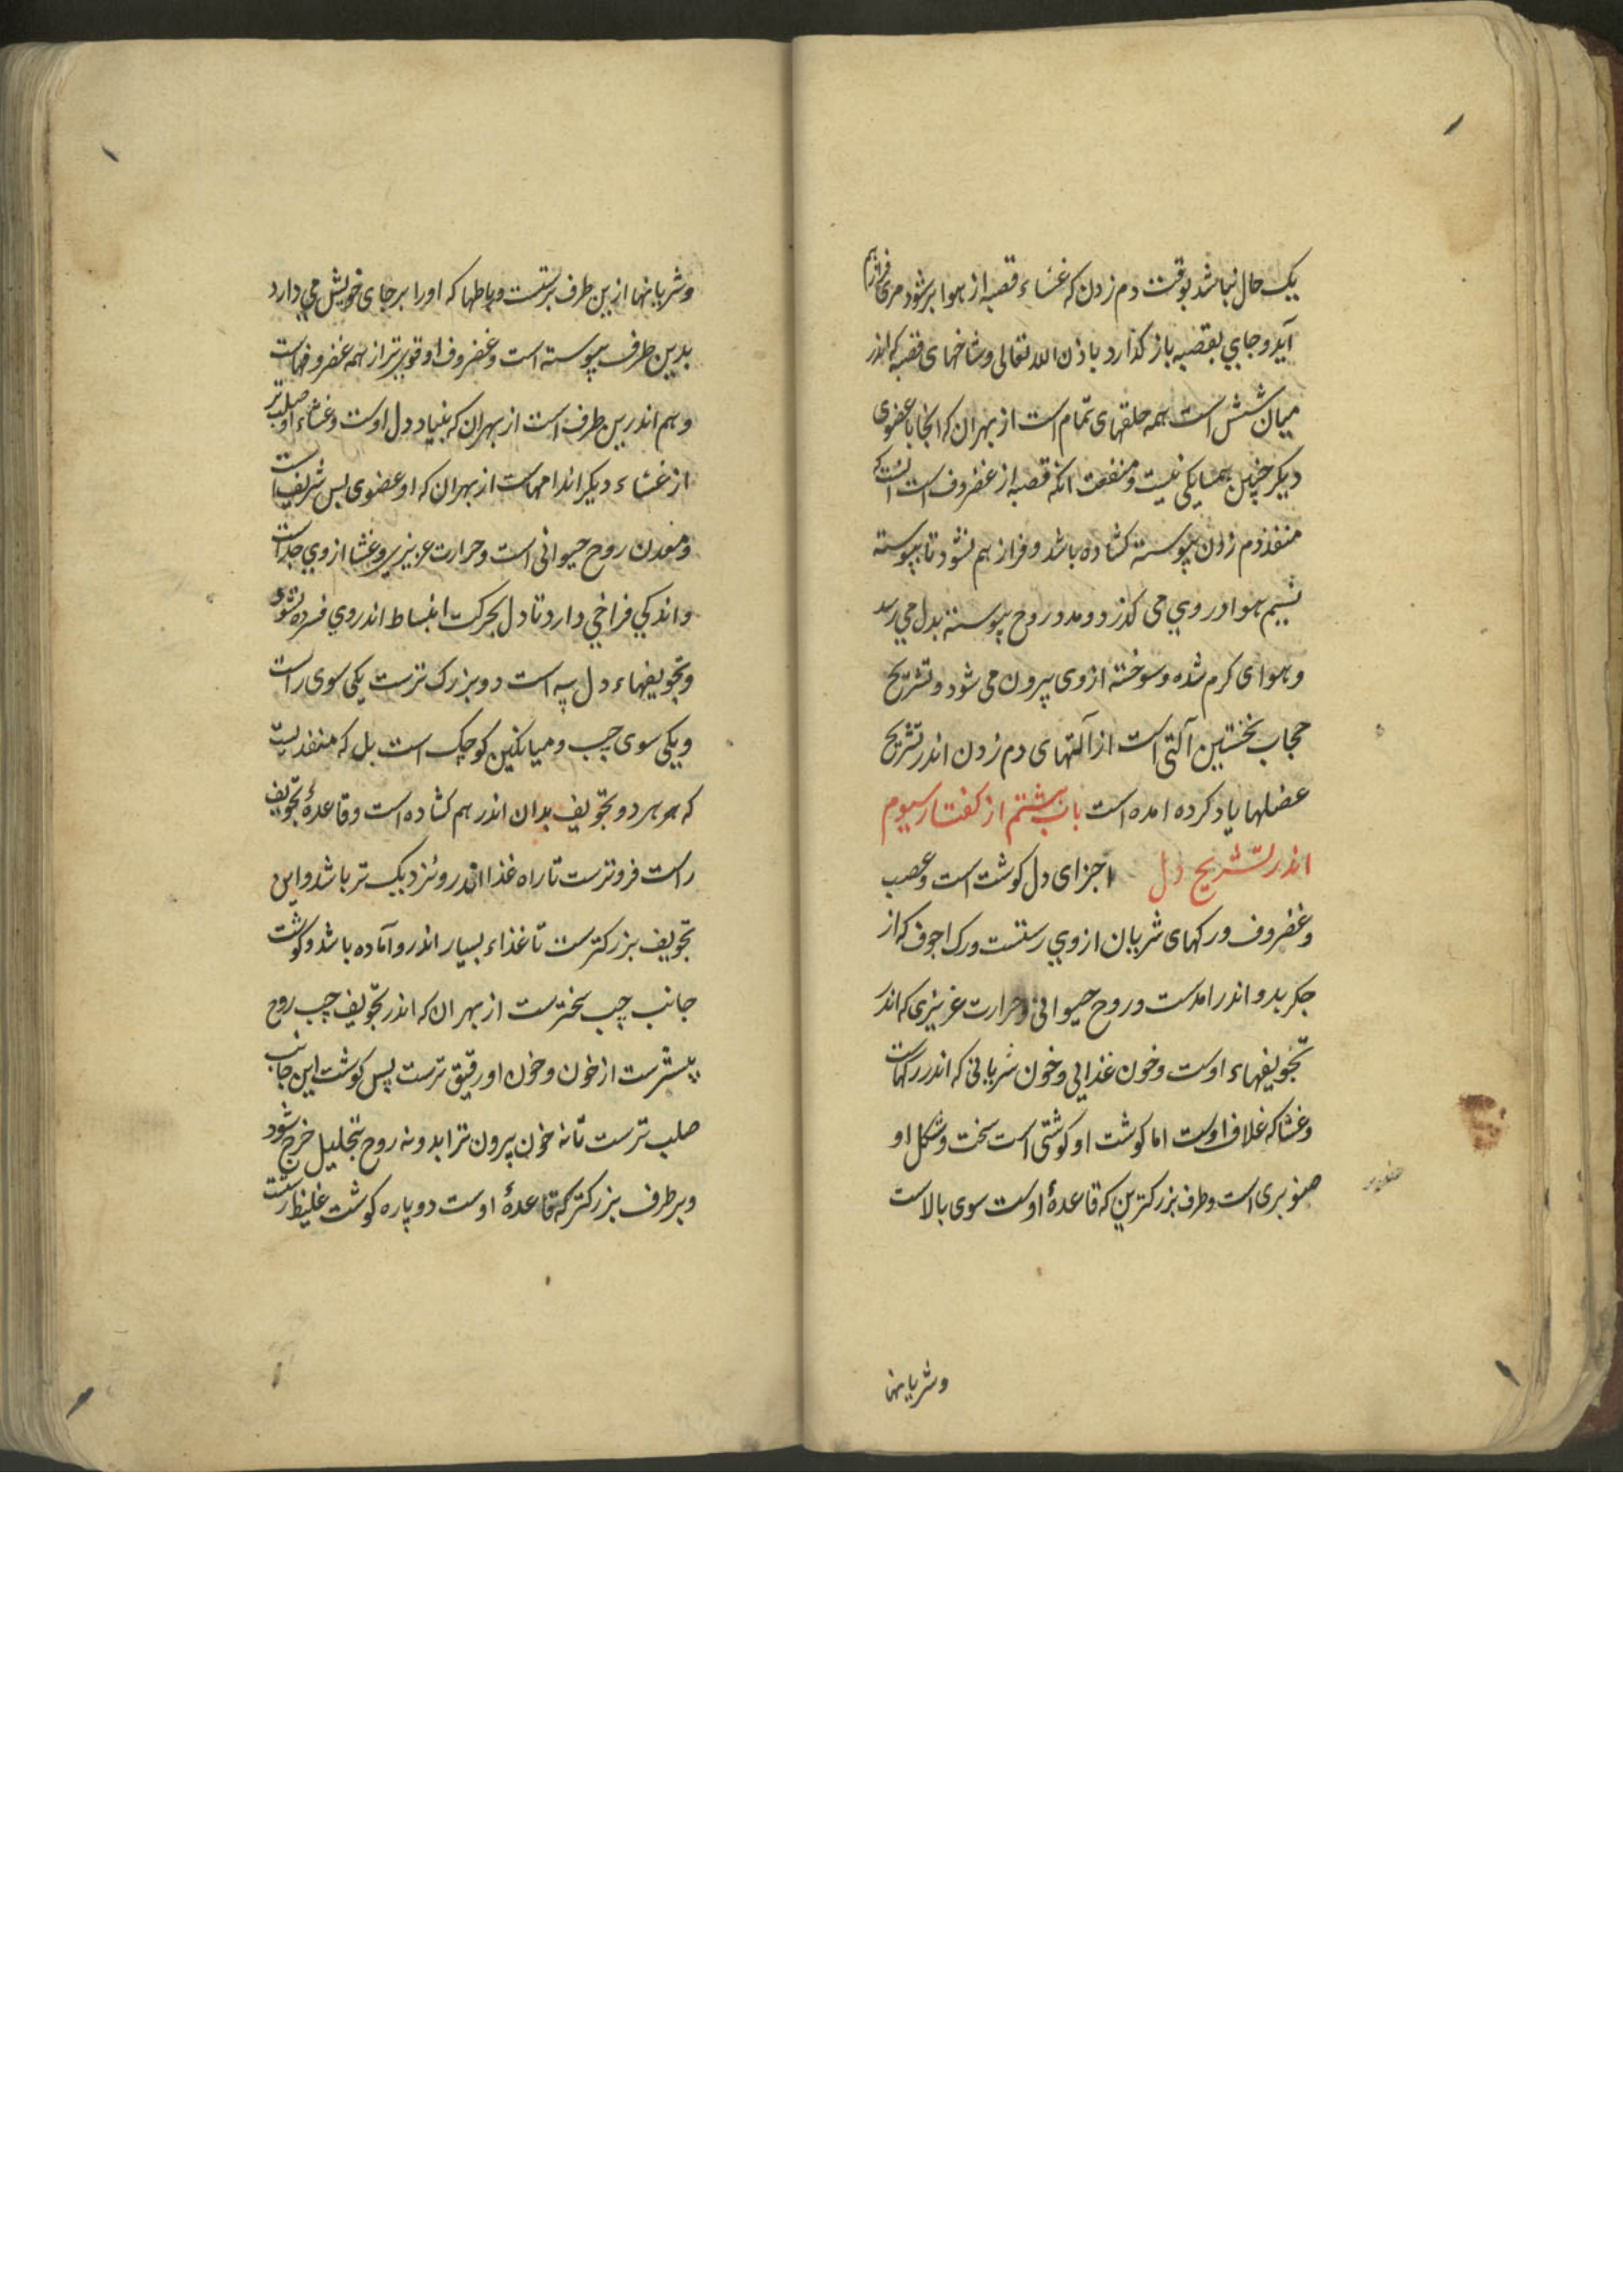 یک حال نباشد بوقت دم زدن که غشاء قصبه از هوا برشود مری فراز هم
آید و جای بقصبه باز کذارد باذن الله تعالی و شاخهای قصبه که اندر
میان شش است همه حلقهای تمام است از بهر ان که انجا با عضوی
دیکر چنین همسایکی نیست و منفعت انکه قصبه از غضروف است انست که
منفذ دم زدن پیوسته کشاده باشد و فراز هم نشود تا پیوسته
نسیم هوا در وی می کذرد و مدد روح پیوسته بدل می رسد
و هوای کرم شده و سوخته از وی بیرون می شود و تشریح
حجاب نخستین آلتی است از آلتهای دم زدن اندر تشریح
عضلها یاد کرده امده است باب هشتم از کفتار سیوم
اندر تشریح دل اجزای دل کوشت است و عصب
و غضروف و رکهای شریان از وی رستست و رک اجوف که از
جکر بدو اندر امدست و روح حیوانی و حرارت غریزی که اندر
تجویفهاء اوست و خون غذایی و خون شریانی که اندر رکهاست
و غشا که غلاف اوست اما کوشت او کوشتی است سخت و شکل او
صنوبری است و طرف بزرکترین که قاعدۀ اوست سوی بالاست
وشریانها
وشریانها ازین طرف برستست و رباطها که اورا بر جای خویش می دارد
بدین طرف پیوسته است و غضروف او قوی‌تر از همه غضروفهاست
و هم اندرین طرف است از بهر ان که بنیاد دل اوست و غشاء او صلب‌تر
از غشاء دیکر اندامهاست از بهر ان که او عضوی بس شریف است
و معدن روح حیوانی است و حرارت عزیزی و غشا از وی جداست
و اندکی فراخی دارد تا دل بحرکت انبساط اندر وی فسرده نشود
و تجویفهاء دل سه است دو بزرک ترست یکی سوی راست
و یکی سوی چپ و میانکین کوچک است بل که منفذیست
که هر هر دو تجویف بدان اندر هم کشاده است و قاعدۀ تجویف
راست فروترست تا راه غذا اندر و نزدیک تر باشد و این
تجویف بزرکترست تا غذاء بسیار اندر و آماده باشد و کوشت
جانب چپ سخترست از بهر ان که اندر تجویف چپ روح
بیشترست از خون و خون او رقیق ترست پس کوشت این جانب
صلب ترست تا نه خون بیرون تزابد و نه روح بتحلیل خرج شود
و بر طرف بزرکتر که قاعدۀ اوست دو پاره کوشت غلیظ رستست